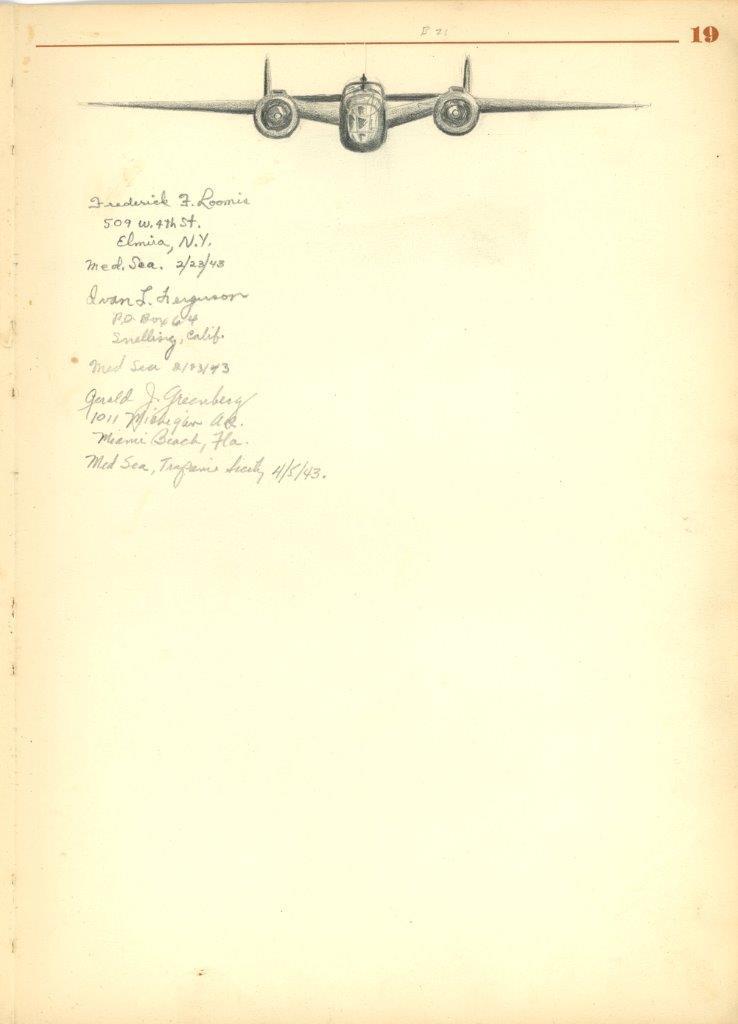 19
Frederick F. Loomis
509 W. 4th St.
Elmira, N.Y.
Med. Sea. 2/23/43
Ivan L. Ferguson
P.O. Box 64
Snelling, Calif.
Med Sea 2/23/43
Gerald J. Greenberg
1011 Michigan
Miami Beach, Fla.
Med Sea, Trapani Sicily 4/5/43.